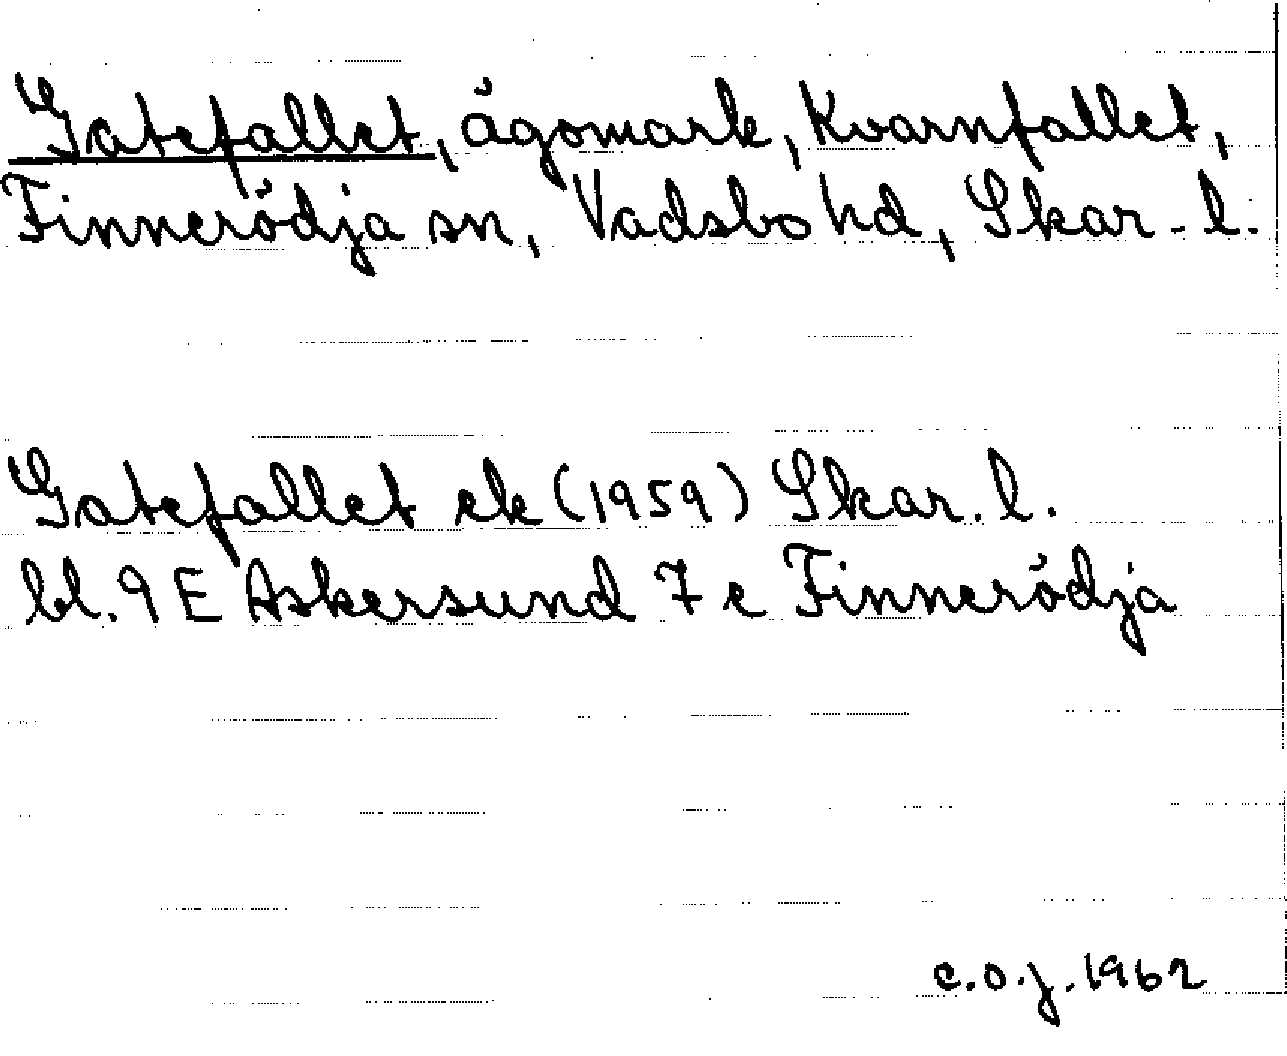 Gatefallet, ägomark, Kvarnfallet,
Finnerödja sn, Vadsbo hd, Skar. l.
Gatefallet ek (1959) Skar. l.
bl. 9E Askersund 7 e Finnerödja
c.o.j. 1962